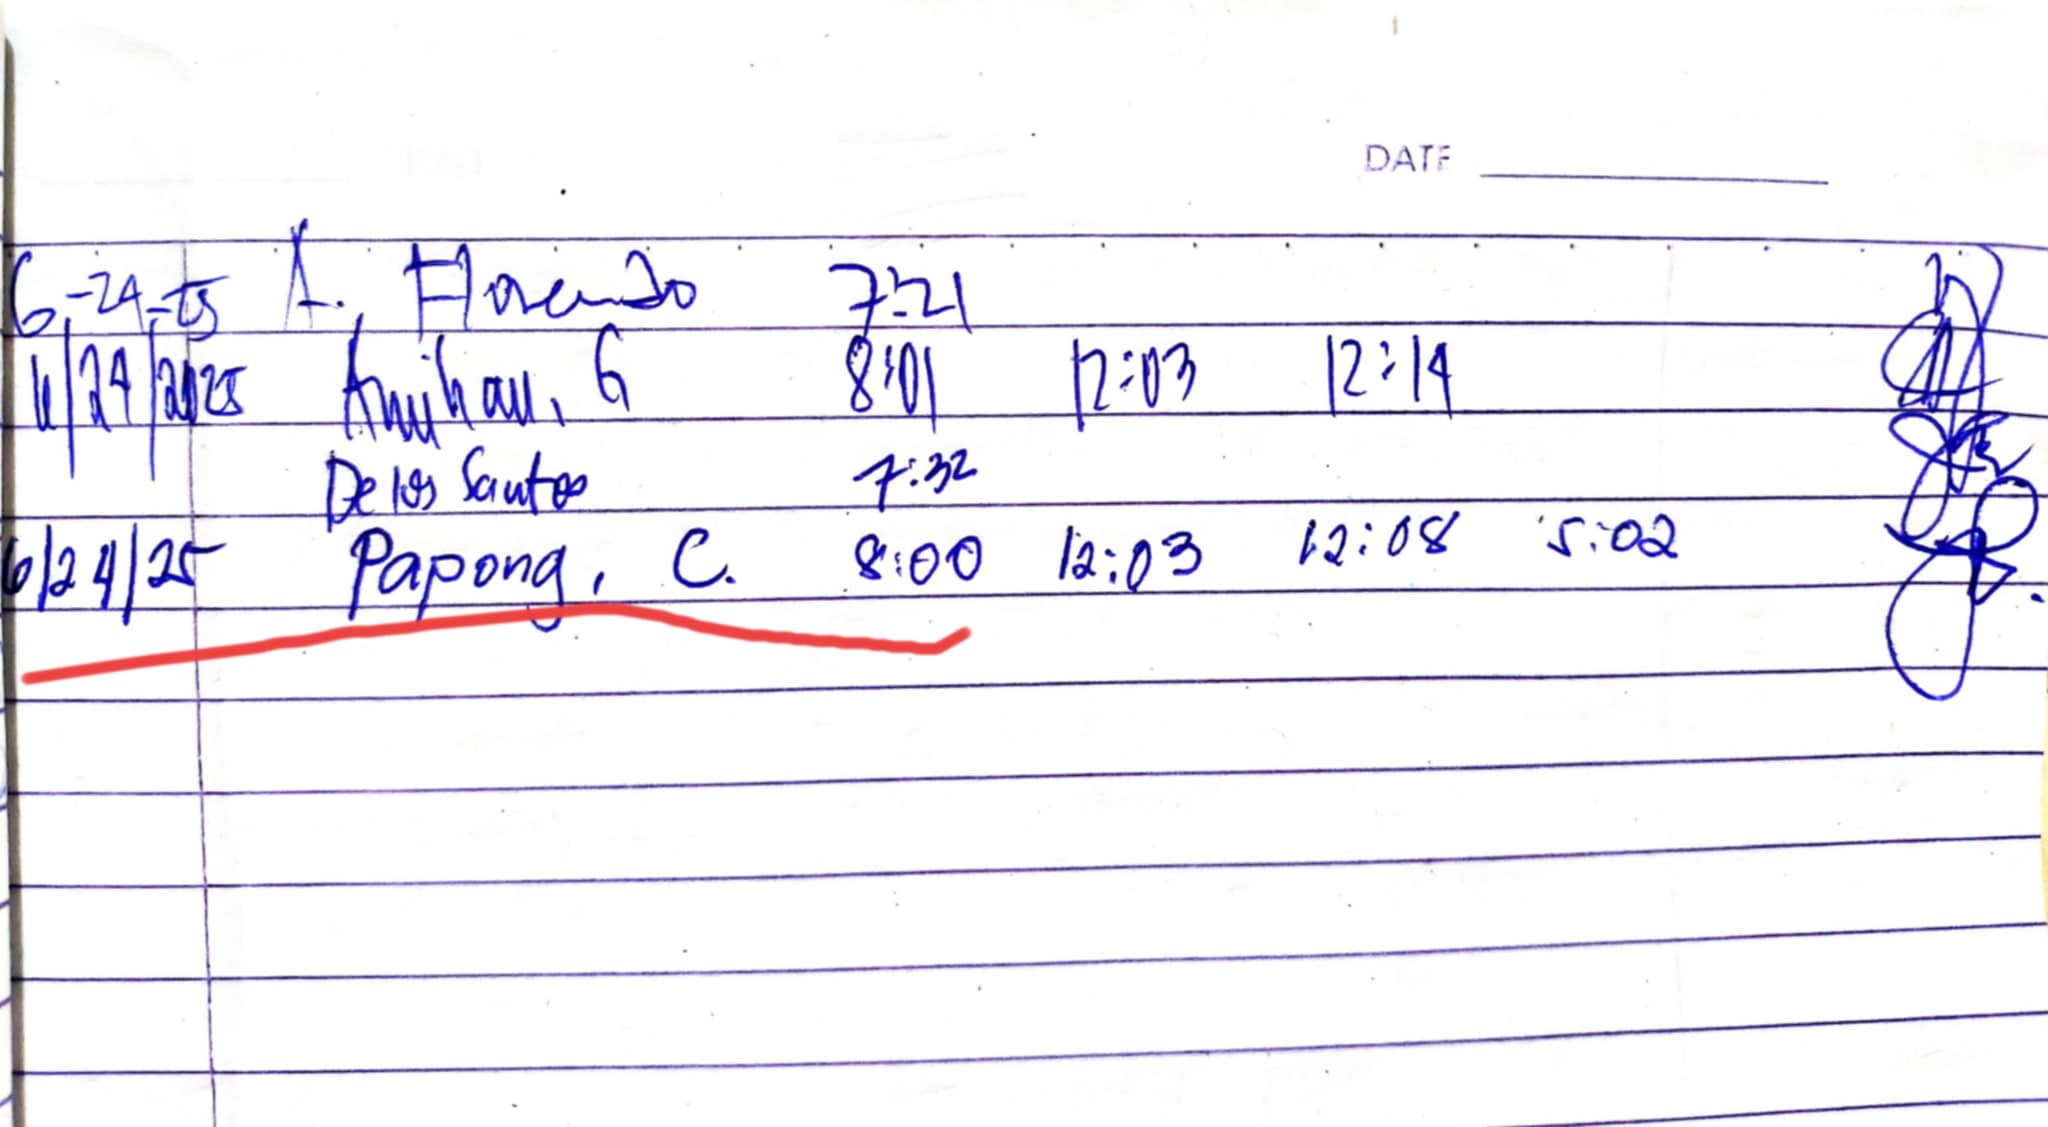 DATE
6-24-25 A. Florendo 7:21
6/24/2025 Anihan, G 8:01 12:03 12:14
De los Santos 7:32
6/24/25 Papong, C. 8:00 12:03 12:08 5:02